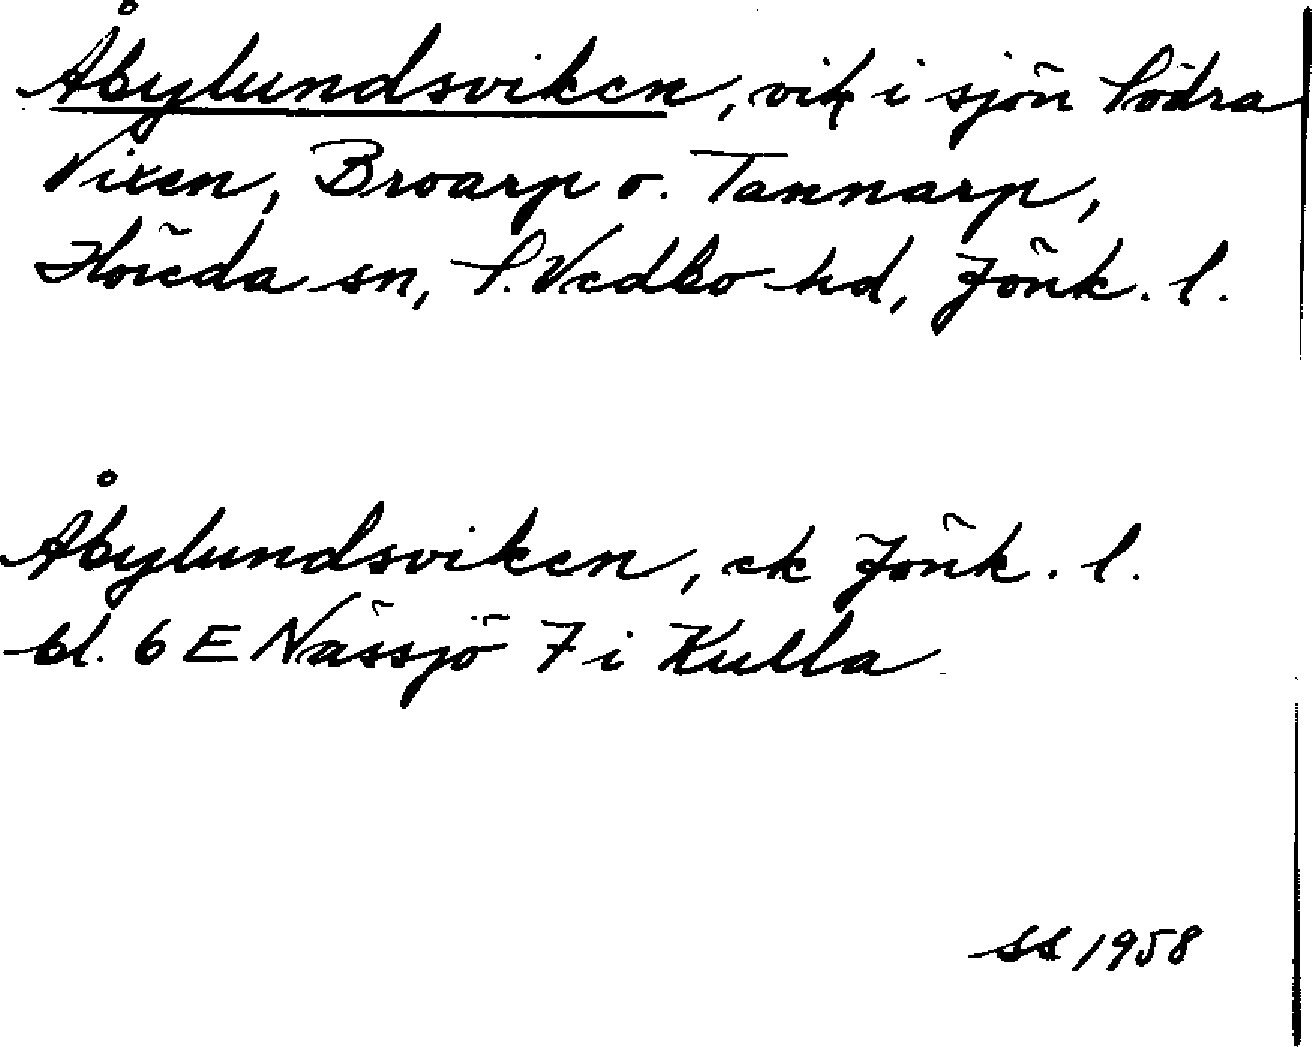 Åbylundsviken, vik i sjön Södra
Vixen, Broarp o. Tannarp,
Flöieda sn, S. Vedbo hd, Jönk. l.
Åbylundsviken, ek Jönk. l.
bl. 6 E Nässjö 7 i Kulla
SS 1958